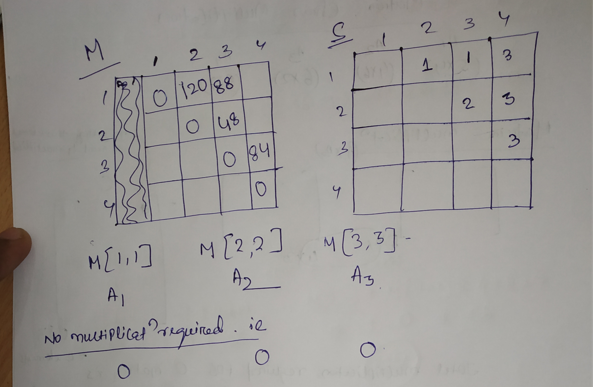 M
S
1 2 3 4
1 0 120 88
2 0 48
3 0 84
4 0
1 2 3 4
1 1 1 3
2 2 3
3 3
4
M[1,1] M[2,2] M[3,3]
A1 A2 A3
No multiplicatn required. ie
0 0 0